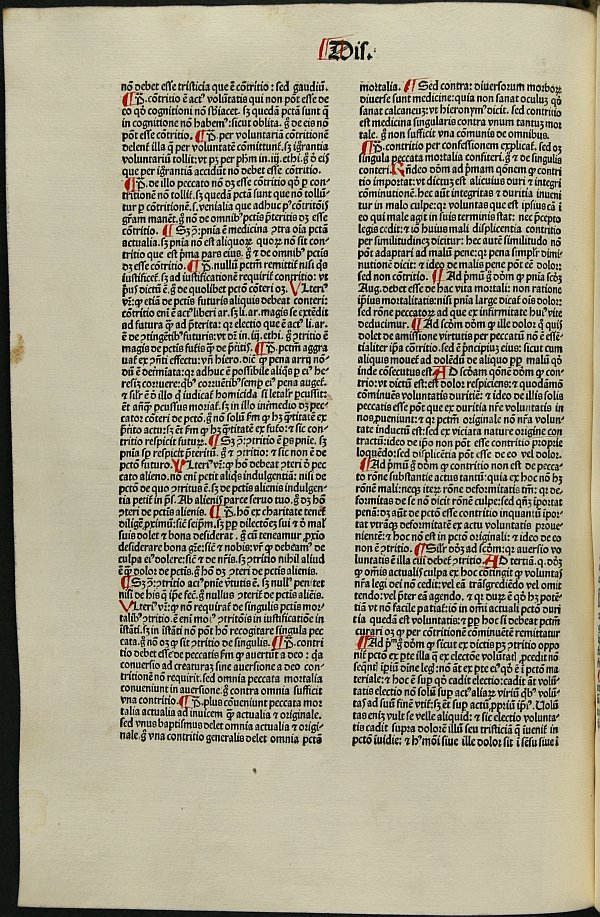 Dis.
nō debet esse tristicia que ē cōtritio: sed gaudiū.
cōtritio ē actꝰ volūtatis qui non pōt esse de
eo qō cognitioni nō sbiacet. sꝫ quedā pctā sunt q̄
in cognitione nō habemꝰ: sicut oblita. g̊ de eis nō
pōt esse cōtritio. per voluntariā cōtritionē
delent̄ illa q̄ per voluntatē cōmittunt̄. sꝫ igrantia
voluntariū tollit: vt pꝫ per phm in .iij. ethi. g̊ ō eis
que per igrantiā accidūt nō debet esse cōtritio.
de illo peccato nō dꝫ esse cōtritio qō p con-
tritionē nō tollit̄. sꝫ quedā pctā sunt que nō tollū-
tur p cōtritionē
gram manēt. g̊ nō de omnibꝰ pctis p̄teritis dꝫ esse
cōtritio. pnīa ē medicina ꝯtra oīa pctā
actualia. sꝫ pnīa nō est aliquoꝝ quoꝝ nō sit con-
tritio que est pma pars eiꝰ. g̊ ꝫ de omnibꝰ pctis
dꝫ esse cōtritio. nullū pctm remittit̄ nisi
iustificet̄. sꝫ ad iustificationē requirit̄ contritio: vt
dictū ē. g̊ de quolibet pctō cōteri oꝫ. Vlteri-
etiā de pctis futuris aliquis debeat conteri:
cōtritio eni ē actꝰ liberi ar. sꝫ li. ar. magis se extēdit
ad futura q̄ ad p̄terita: qr electio que ē actꝰ li. ar.
ē de ꝯtingētibꝰ futuris: vt dr̄ in .iij. ethi. g̊ ꝯtritio ē
magis de pctis futis q̄ de p̄titis. pctm aggra
uat̄ ex ꝯn̄ti effectu: vn̄ hiero. dic̄ q pena arrij nō-
dū ē det̄miata: qr adhuc ē possibile aliqs
ē silr̄ ē ō illo q̄ iudicat̄ homicida si letalr̄ pcussit:
ēt anq̄ pcussus moriat̄. sꝫ in illo in̄medio dꝫ pec-
cator cōteri de pctō. g̊ nō solū
p̄ito actu: sꝫ ēt
tritio respicit futur̄. ꝯtritio ē ps pnie. sꝫ
pnia sp respicit p̄teritū. g̊ ꝫ ꝯtritio: ꝫ sic non ē de
pctō futuro. Vlteriꝰ: q hō debeat ꝯteri ō pec
cato alieno. nō eni petit aliqs indulgentiā: nisi de
pctō de quo ꝯtritus ē. sꝫ de pctis alienis indulgen-
tia petit̄ in ps̄. Ab alienis parce seruo tuo. g̊ dꝫ hō
ꝯteri de pctis alienis. hō ex charitate tenet̄
diliḡe primū: sicut seipm̄. sꝫ
suis dolet ꝫ bona desiderat. g̊ cū teneamur primo
desiderare bona gr̄e: sicut ꝫ nobis: vr̄ q debeamꝰ de
culpa eiꝰ dolere: sicut ꝫ de nr̄is. sꝫ ꝯtritio nihil aliud
ē q̄ dolor de pctis. g̊ dꝫ hō ꝯteri de pctis alienis.
ꝯtritio actꝰ pnīe v̄tutis ē. sꝫ nullꝰ penitet
nisi de his q̄ ipe fec̄. g̊ nullus ꝯterit̄ de pctis aliēis.
Vlteriꝰ: q nō requirat̄ de singulis pctis mor-
talibꝰ ꝯtritio. ē eni
istāti. sꝫ in istāti nō pōt hō recogitare singula pec
cata. g̊ nō oꝫ q sit ꝯtritio de singulis. contri
tio debet esse de peccatis auertūt a deo: qa
conuersio ad creaturas sine auersione a deo con-
tritionē non requirit. sed omnia peccata mortalia
conueniunt in auersione. g̊ contra omnia sufficit
vna contritio. plus cōueniunt peccata mor
talia actualia ad inuicem q̄ actualia ꝫ originale.
sed vnus baptismus delet omnia actualia ꝫ origi-
nale. g̊ vna contritio generalis delet omnia pctā
mortalia. Sed contra: diuersorum morboꝝ
diuerse sunt medicine: quia non sanat oculuꝫ qō
sanat calcaneuꝫ: vt hieronymꝰ dicit. sed contritio
est medicina singularis contra vnum tantuꝫ mor
tale. g̊ non sufficit vna cōmunis de omnibus.
contritio per confessionem explicat̄. sed oꝫ
singula peccata mortalia confiteri. g̊ ꝫ de singulis
conteri. Rn̄deo dōm ad p̄mam qōnem q contri
tio importat: vt dictuꝫ est alicuius duri ꝫ integri
cōminutionē. hec aūt integritas ꝫ duritia inueni
tur in malo culpe: qr voluntas que est ipsius cā ī
eo qui male agit in suis terminis stat: nec p̄cepto
legis cedit: ꝫ iō huius mali displicentia contritio
per similitudineꝫ dicitur: hec autē similitudo nō
pōt adaptari ad malū pene: qr pena simplr̄ dimi-
nutionē dicit: ꝫ ideo de malis pene pōt eē dolor:
sed non cōtritio. Ad p̄mū g̊ dōm q pnīa scd̄ꝫ
Aug. debet esse de hac vita mortali: non ratione
ip̄ius mortalitatis: nisi pnīa large dicat̄ ois dolor:
sed rōne peccatoꝝ ad que ex infirmitate huiꝰ vite
deducimur. Ad scd̄m dōm q ille dolor q̄ quis
dolet de amissione virtutis per peccatū nō ē essē-
tialiter ip̄a cōtritio. sed ē p̄ncipiuꝫ eius: sicut eum
aliquis mouet̄ ad dolēdū de aliquo pp malū qō
inde cōsecutus est. Ad scd̄am qōnē dōm q con-
tritio: vt dictū est: est dolor respiciens: ꝫ quodāmō
cōminuēs voluntatis duritiē: ꝫ ideo de illis solis
peccatis esse pōt que ex duritia nr̄e voluntatis in
nos ꝓueniunt: ꝫ qr pctm̄ originale nō nr̄a volun-
tate inductū est: sed ex viciata nature origine con
tractū: ideo de ip̄o non pōt esse contritio proprie
loquēdo: sed displicētia pōt esse de eo vel dolor.
Ad p̄mū g̊ dōm q contritio non est de pecca-
to rōne substantie actus tantū: quia ex hoc nō hꝫ
rōnē mali: neqꝫ iterꝫ rōne deformitatis tm̄: qr de-
formitas de se nō dicit rōnē culpe: sed qn̄qꝫ īportat
penā: dꝫ aūt de pctō esse contritio inquantū ipor-
tat vtranqꝫ deformitatē ex actu voluntatis proue-
nientē: ꝫ hoc nō est in pctō originali: ꝫ ideo de eo
non ē ꝯtritio. Silr̄ dōꝫ ad scd̄m: qr auersio vo
luntatis ē illa cui debet̄ ꝯtritio. Ad tertiā. q. dōꝫ
q omīs actualis culpa ex hoc cōtingit q voluntas
nr̄a legi dei nō cedit: vel eā trāsgrediēdo vel omit
tendo: vel p̄ter eā agendo. ꝫ qr durū ē qō hꝫ potē-
tiā vt nō facile patiat̄: iō in omī actuali pctō duri
tia quedā est voluntatis: ꝫ pp hoc si debeat pctm̄
curari oꝫ q per cōtritionē cōminuētē remittatur
Ad p̄mū g̊ dōm q sicut ex dictis pꝫ ꝯtritio oppo
nit̄ pctō ex p̄te illa q̄ ex electōe volūtatis p̄cedit nō
seqn̄tis ip̄iū diuine legis: nō aūt ex p̄te eiꝰ qō ē ī pctō ma
teriale: ꝫ hoc ē sup qō cadit electio: cadit aūt volū-
tatis electio nō solū sup actꝰ aliaꝝ viriū q̄bꝰ volū-
tas ad suū finē vtit̄: sꝫ ēt sup actū ꝓpriū ip̄iꝰ. Volū
tas eniꝫ vult se velle aliquid: ꝫ sic electio volunta-
tis cadit supra dolorē illū seu tristiciā q̄ īuenit̄ in
pctō iuidie: ꝫ hmōi siue ille dolor sit ī sēsu siue ī